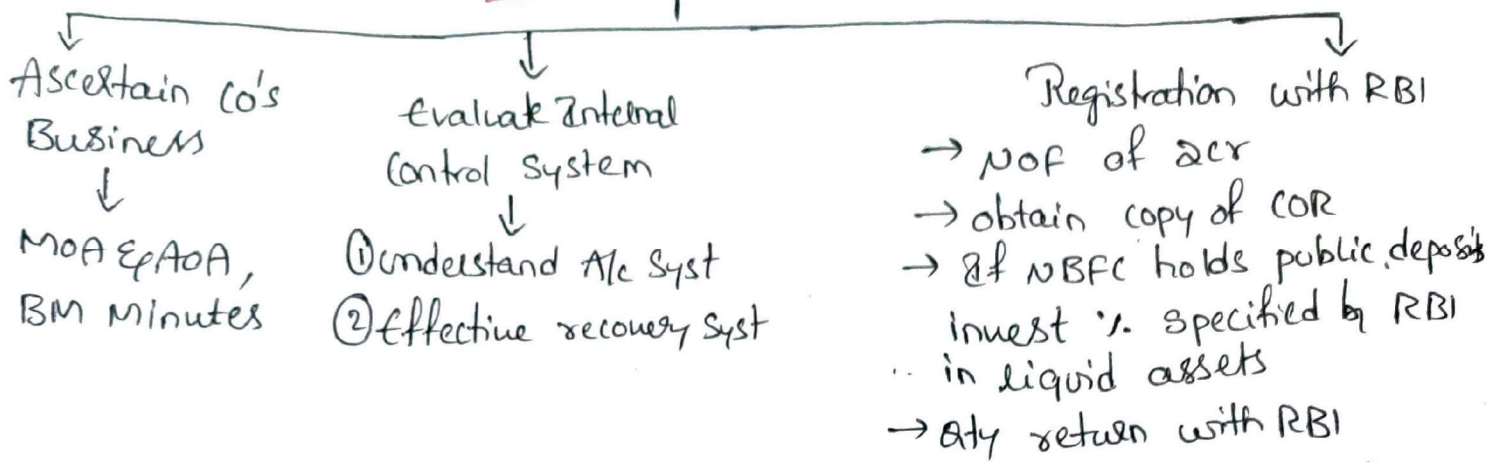 Ascertain Co's
Business
MOA & AOA,
BM Minutes
Evaluate Internal
Control System
① understand A/c Syst
② Effective recovery Syst
Registration with RBI
→ NOF of 2cr
→ obtain copy of COR
→ If NBFC holds public deposits
invest % specified by RBI
in liquid assets
→ Qty return with RBI